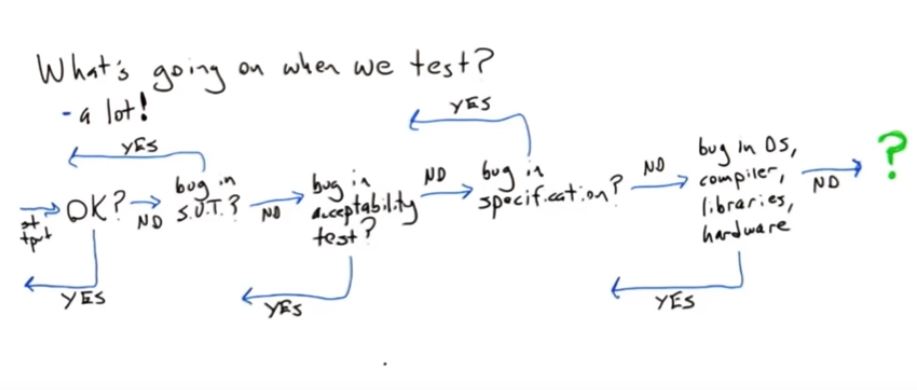 What's going on when we test?
- a lot!
YES
YES
OK?
NO
bug in
S.U.T.?
NO
bug in
acceptability
test?
NO
bug in
specification?
NO
bug in OS,
compiler,
libraries,
hardware
NO
?
st
tput
YES
YES
YES